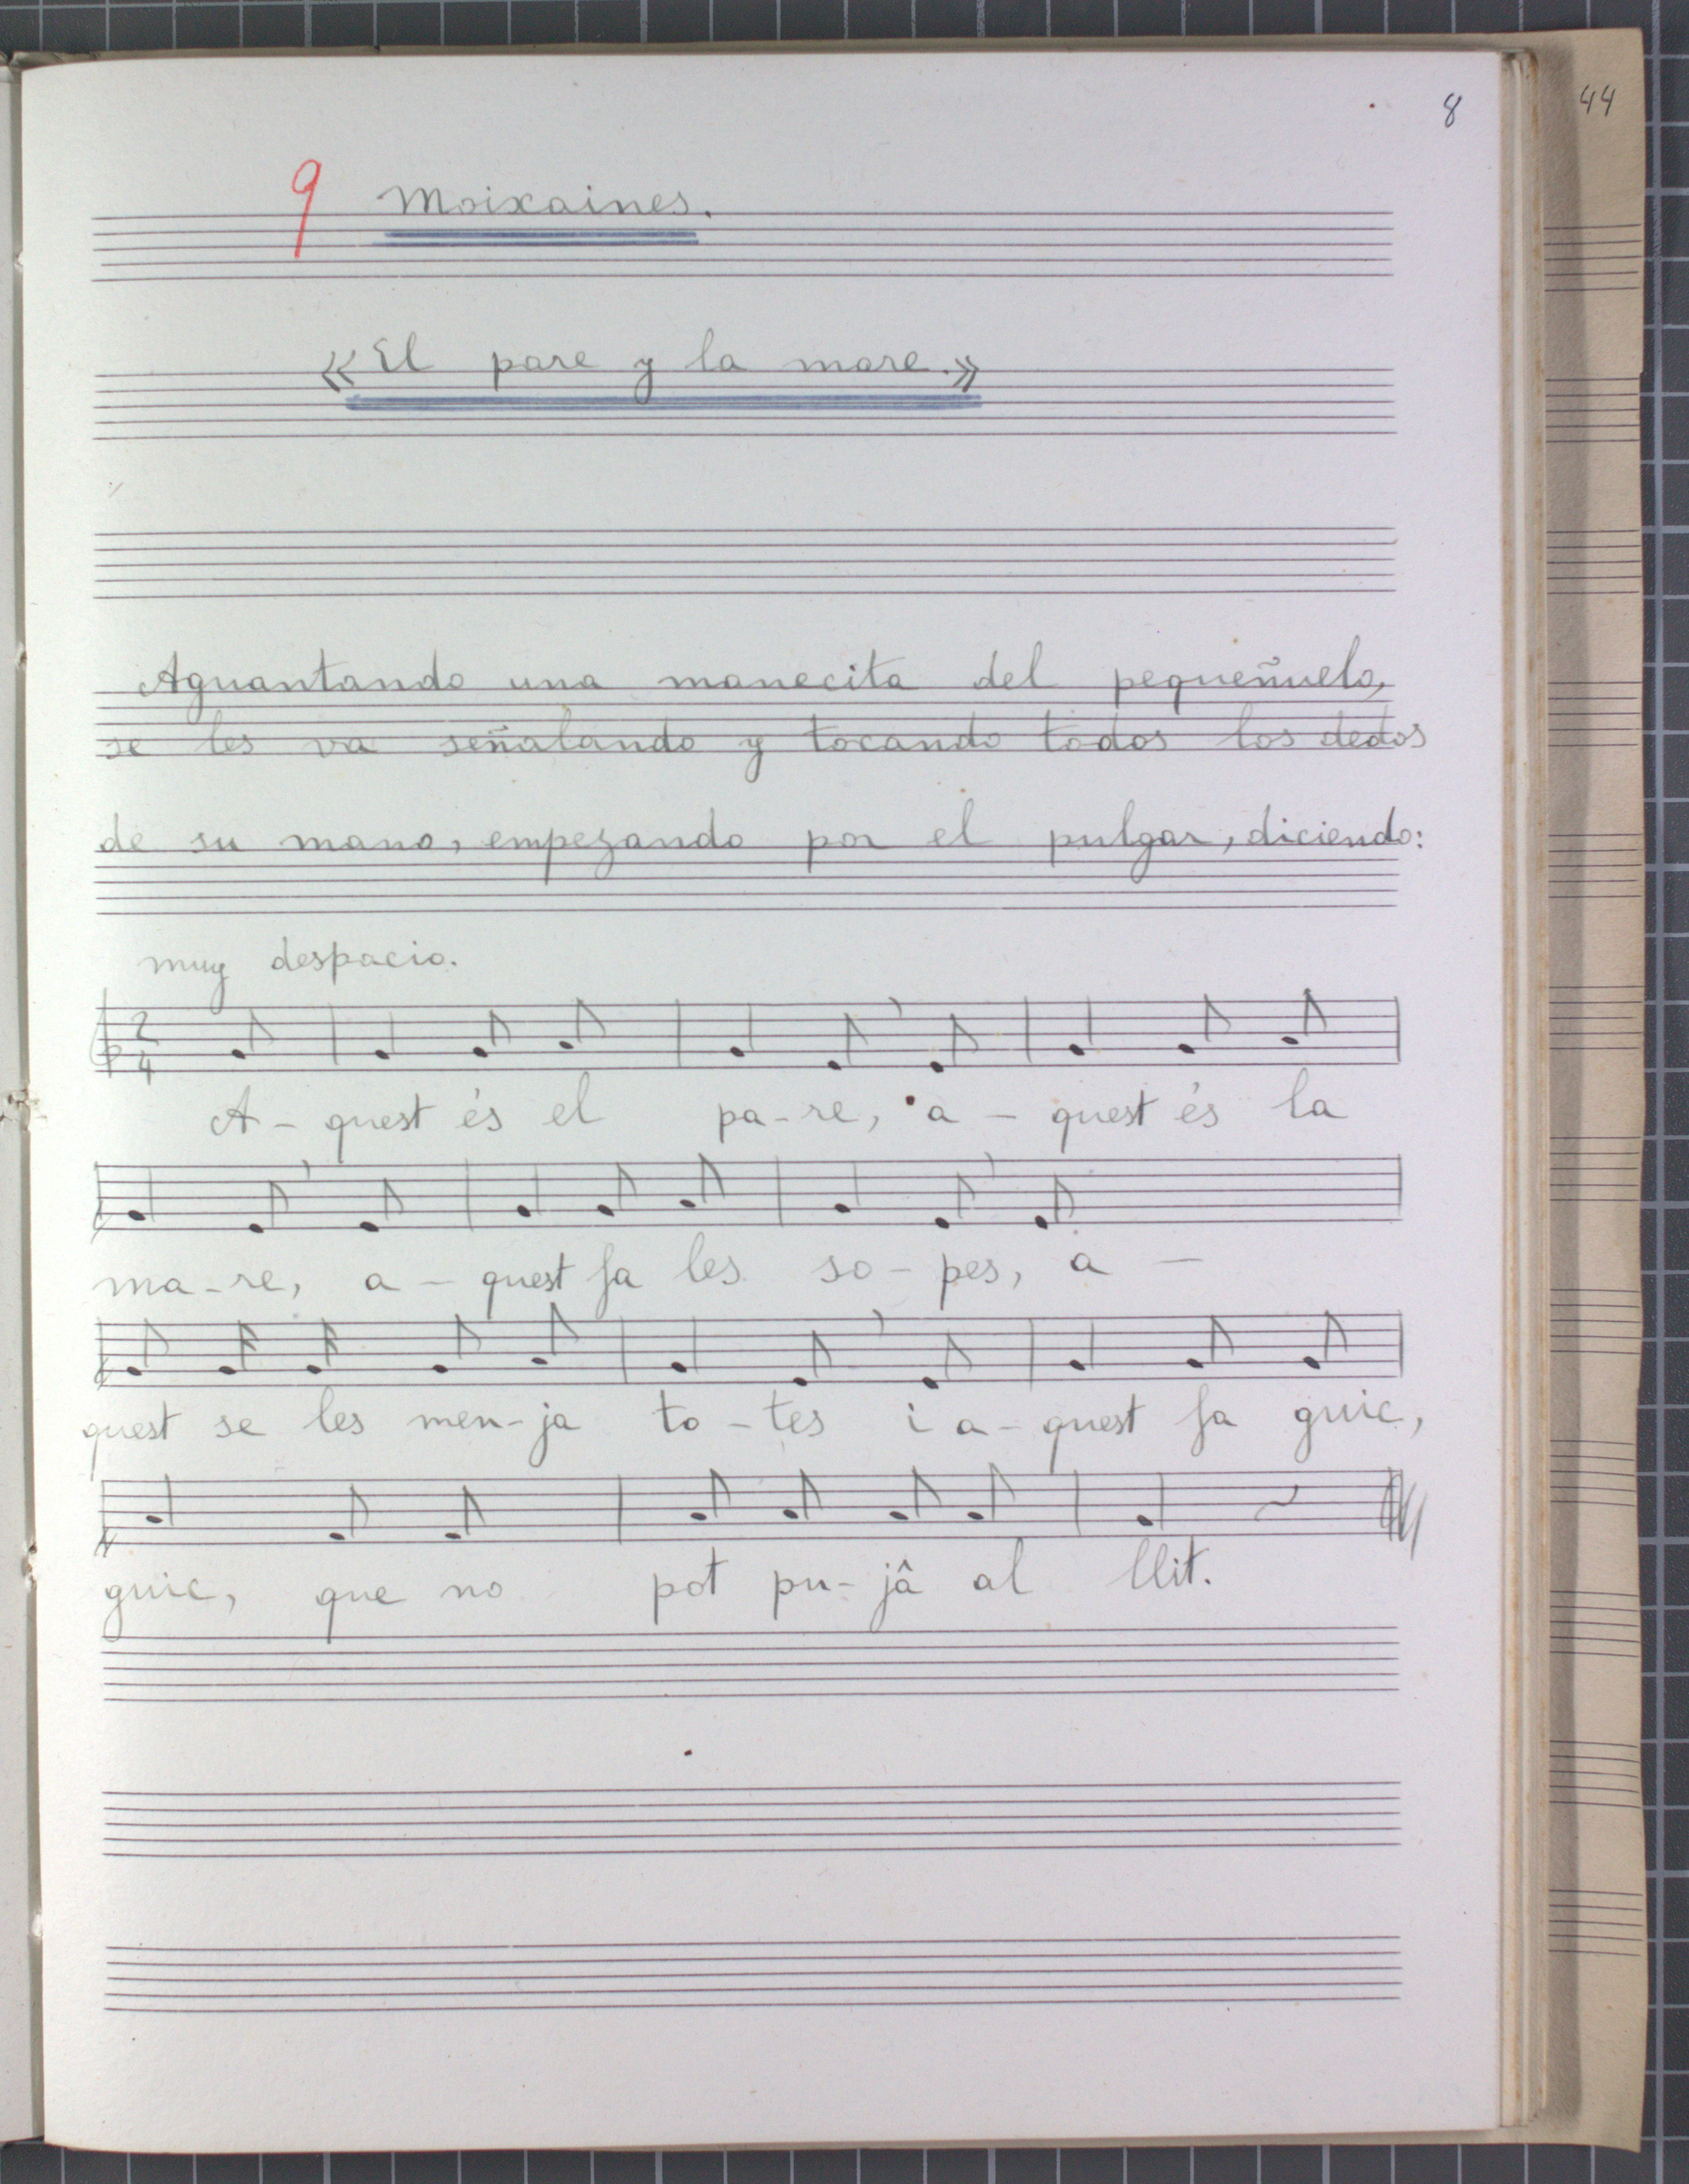 8
44
9 Moixaines.
«El pare y la mare.»
Aguantando una manecita del pequeñuelo,
se les va señalando y tocando todos los dedos
de su mano, empezando por el pulgar, diciendo:
muy despacio.
2
4
A - quest és el pa - re, a - quest és la
ma - re, a - quest fa les so - pes, a -
quest se les men - ja to - tes i a - quest fa guic,
guic, que no pot pu - jâ al llit.